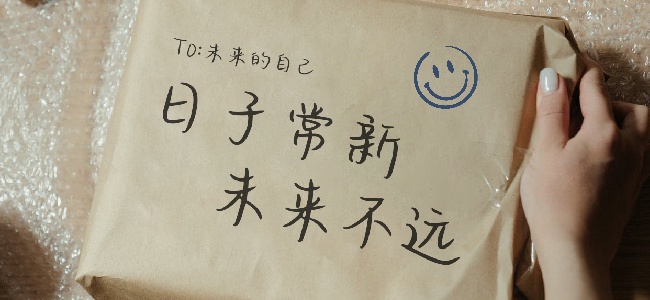 TO:未来的自己
日子常新
未来不远